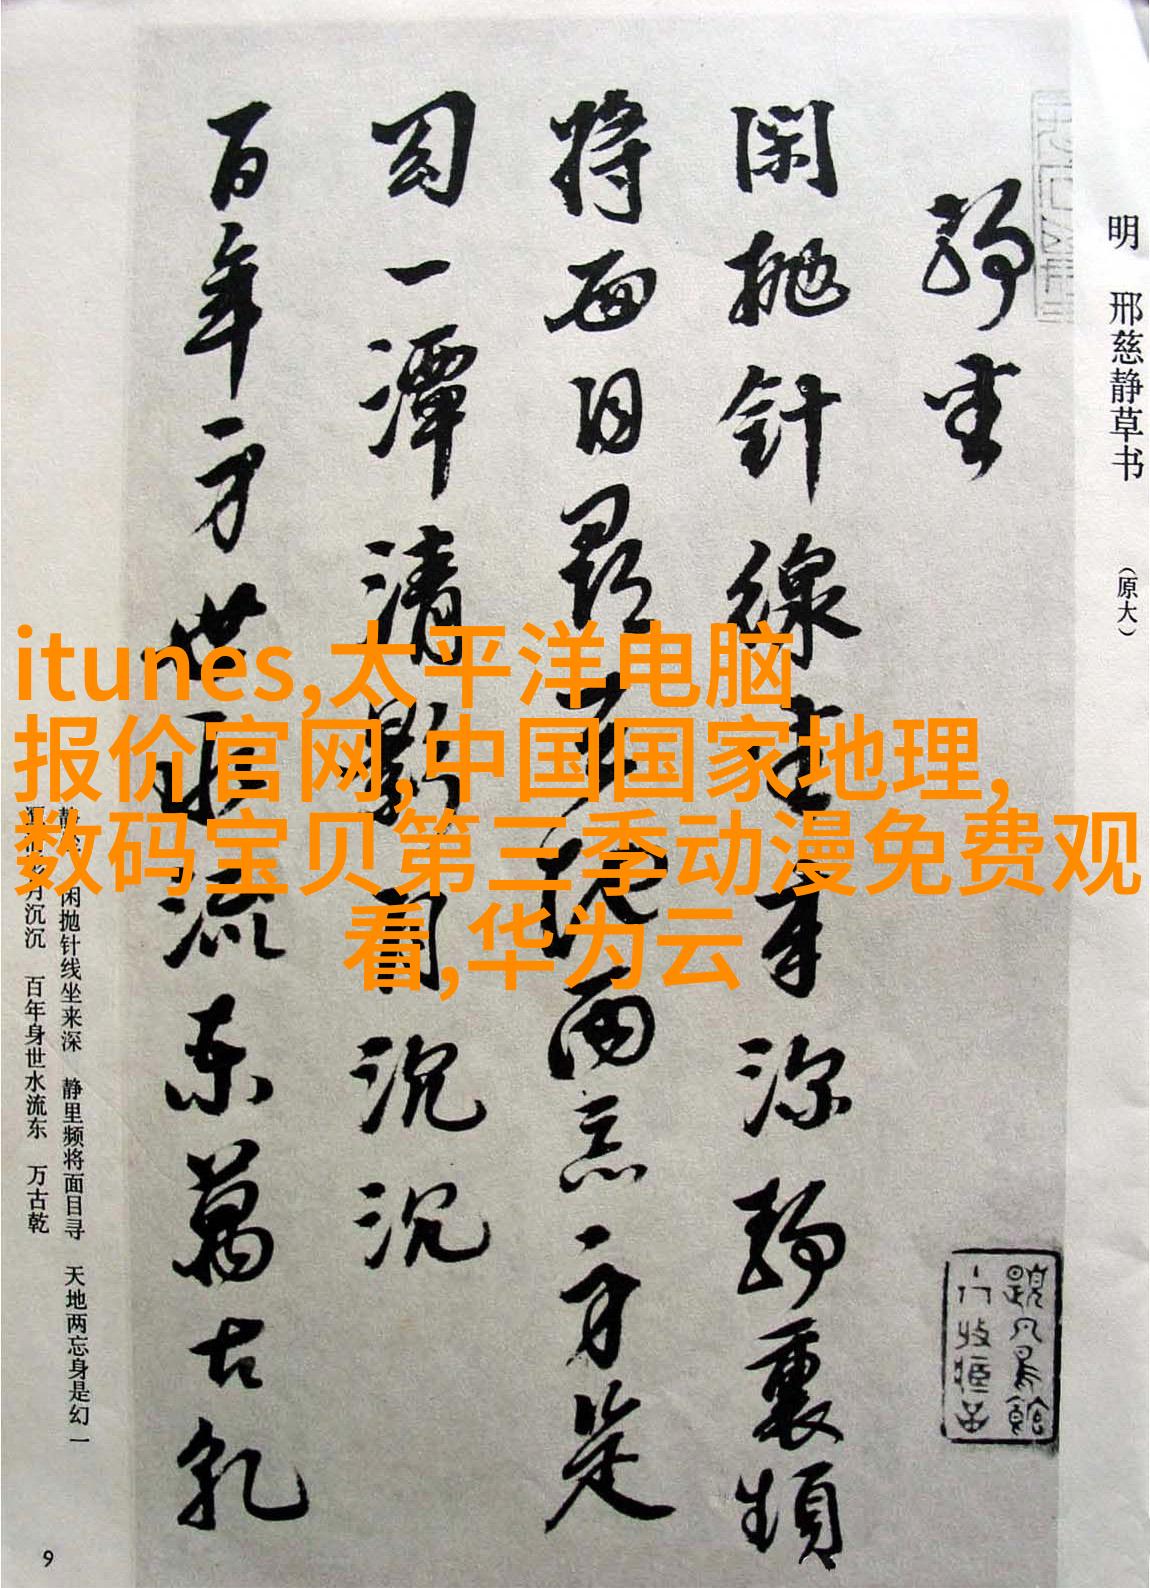 明 邢慈静草书
（原大）
静坐
闲抛针線坐来深静裏頻
将面目尋天地两忘身是
幻一潭清影月沉沉
百年身世水流东萬古乾
itunes,太平洋电脑
报价官网,中国国家地理,
数码宝贝第三季动漫免费观
看,华为云
闲抛针线坐来深 静里频将面目寻 天地两忘身是幻一
月沉沉 百年身世水流东 万古乾
9